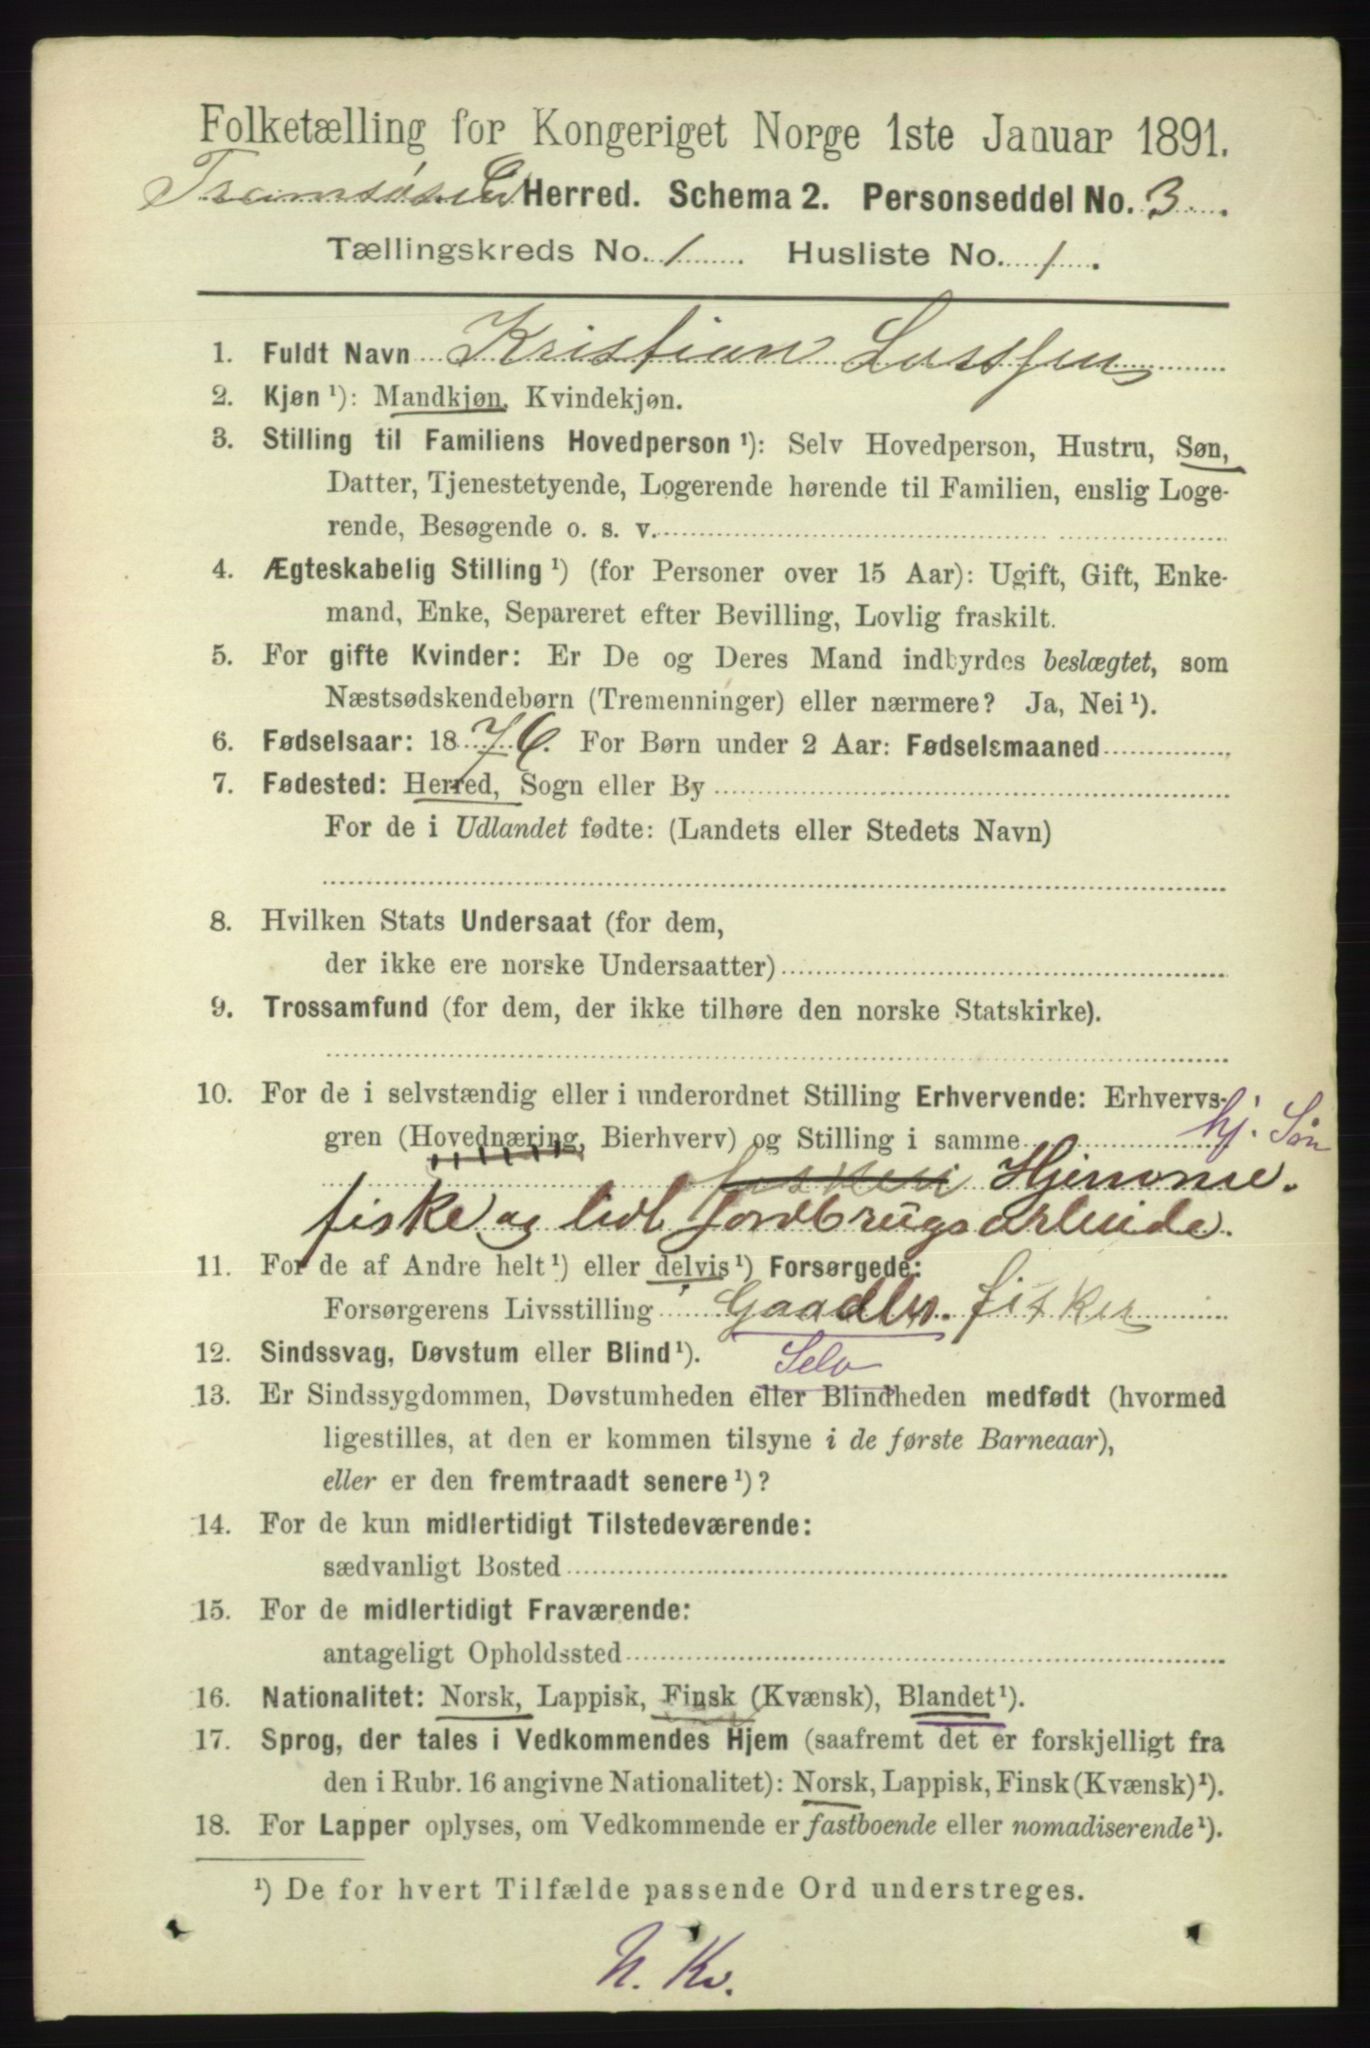 Folketælling for Kongeriget Norge 1ste Januar 1891.
Tromsøsund Herred. Schema 2. Personseddel No. 3
Tællingskreds No. 1 Husliste No. 1.
1. Fuldt Navn Kristian Lassen
2. Kjøn¹): Mandkjøn, Kvindekjøn.
3. Stilling til Familiens Hovedperson¹): Selv Hovedperson, Hustru, Søn,
Datter, Tjenestetyende, Logerende hørende til Familien, enslig Loge-
rende, Besøgende o. s. v.
4. Ægteskabelig Stilling¹) (for Personer over 15 Aar): Ugift, Gift, Enke-
mand, Enke, Separeret efter Bevilling, Lovlig fraskilt.
5. For gifte Kvinder: Er De og Deres Mand indbyrdes beslægtet, som
Næstsødskendebørn (Tremenninger) eller nærmere? Ja, Nei¹).
6. Fødselsaar: 1876. For Børn under 2 Aar: Fødselsmaaned
7. Fødested: Herred, Sogn eller By
For de i Udlandet fødte: (Landets eller Stedets Navn)
8. Hvilken Stats Undersaat (for dem,
der ikke ere norske Undersaatter)
9. Trossamfund (for dem, der ikke tilhøre den norske Statskirke).
10. For de i selvstændig eller i underordnet Stilling Erhvervende: Erhvervs-
gren (Hovednæring, Bierhverv) og Stilling i samme hj. Søn
Hjemme.
fiske og lidt Jordbrugsarbeide.
11. For de af Andre helt¹) eller delvis¹) Forsørgede:
Forsørgerens Livsstilling Gaadbr. fisker
12. Sindssvag, Døvstum eller Blind¹). Selv
13. Er Sindssygdommen, Døvstumheden eller Blindheden medfødt (hvormed
ligestilles, at den er kommen tilsyne i de første Barneaar),
eller er den fremtraadt senere¹)?
14. For de kun midlertidigt Tilstedeværende:
sædvanligt Bosted
15. For de midlertidigt Fraværende:
antageligt Opholdssted
16. Nationalitet: Norsk, Lappisk, Finsk (Kvænsk), Blandet¹).
17. Sprog, der tales i Vedkommendes Hjem (saafremt det er forskjelligt fra
den i Rubr. 16 angivne Nationalitet): Norsk, Lappisk, Finsk (Kvænsk)¹).
18. For Lapper oplyses, om Vedkommende er fastboende eller nomadiserende¹).
¹) De for hvert Tilfælde passende Ord understreges.
N. Kv.